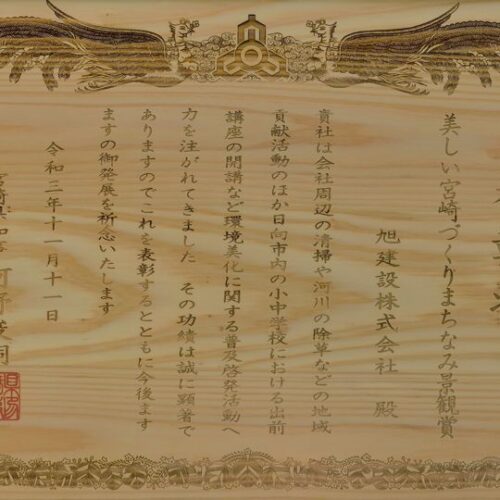 美しい宮崎づくりまちなみ景観賞
旭建設株式会社 殿
貴社は会社周辺の清掃や河川の除草などの地域
貢献活動のほか日向市内の小中学校における出前
講座の開講など環境美化に関する普及啓発活動へ
力を注がれてきました その功績は誠に顕著で
ありますのでこれを表彰するとともに今後ます
ますの御発展を祈念いたします
令和三年十一月十一日
宮崎県知事 河野俊嗣